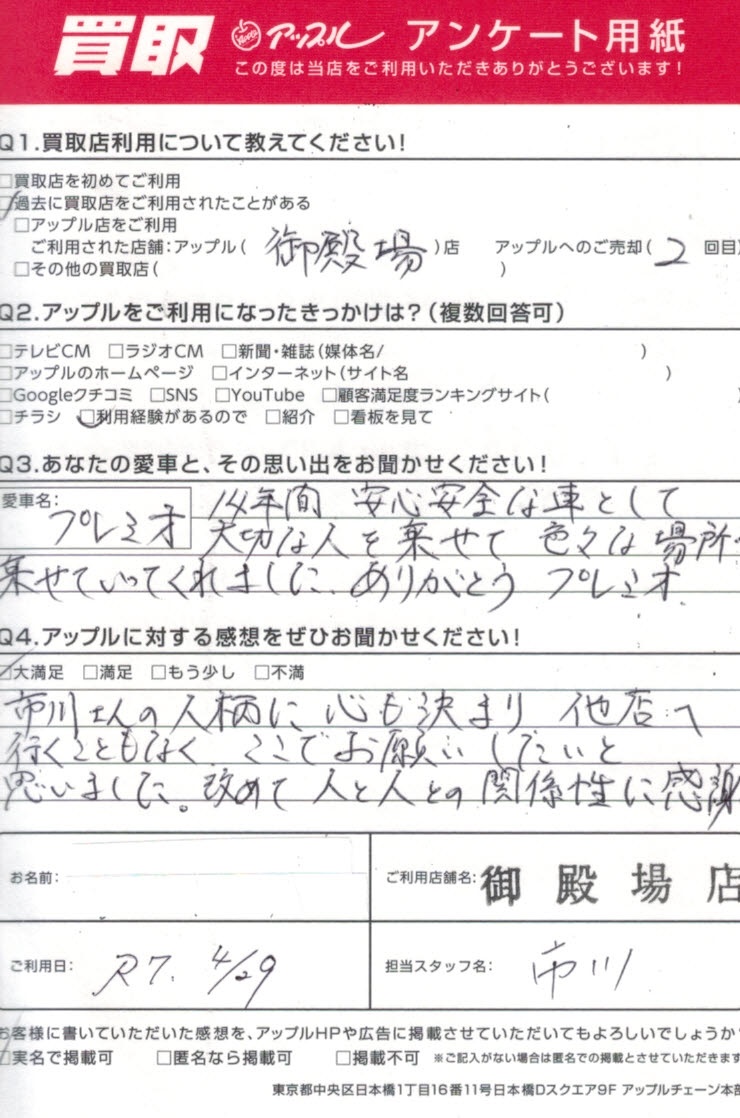 買取 アップル アンケート用紙
この度は当店をご利用いただきありがとうございます!
Q1.買取店利用について教えてください!
□買取店を初めてご利用
□過去に買取店をご利用されたことがある
□アップル店をご利用
ご利用された店舗:アップル( 御殿場 )店 アップルへのご売却( 2 回目)
□その他の買取店( )
Q2.アップルをご利用になったきっかけは?(複数回答可)
□テレビCM □ラジオCM □新聞・雑誌(媒体名/ )
□アップルのホームページ □インターネット(サイト名 )
□Googleクチコミ □SNS □YouTube □顧客満足度ランキングサイト( )
□チラシ □利用経験があるので □紹介 □看板を見て
Q3.あなたの愛車と、その思い出をお聞かせください!
愛車名: プレミオ 14年間 安心安全な車として
大切な人を乗せて 色々な場所
乗せていってくれました。ありがとう プレミオ
Q4.アップルに対する感想をぜひお聞かせください!
□大満足 □満足 □もう少し □不満
市川さんの人柄に心も決まり 他店へ
行くこともなく ここでお願いしたいと
思いました。改めて人と人との関係性に感謝
お名前: ご利用店舗名: 御殿場店
ご利用日: R7. 4/29 担当スタッフ名: 市川
お客様に書いていただいた感想を、アップルHPや広告に掲載させていただいてもよろしいでしょうか?
□実名で掲載可 □匿名なら掲載可 □掲載不可 ※ご記入がない場合は匿名での掲載とさせていただきます
東京都中央区日本橋1丁目16番11号日本橋Dスクエア9F アップルチェーン本部